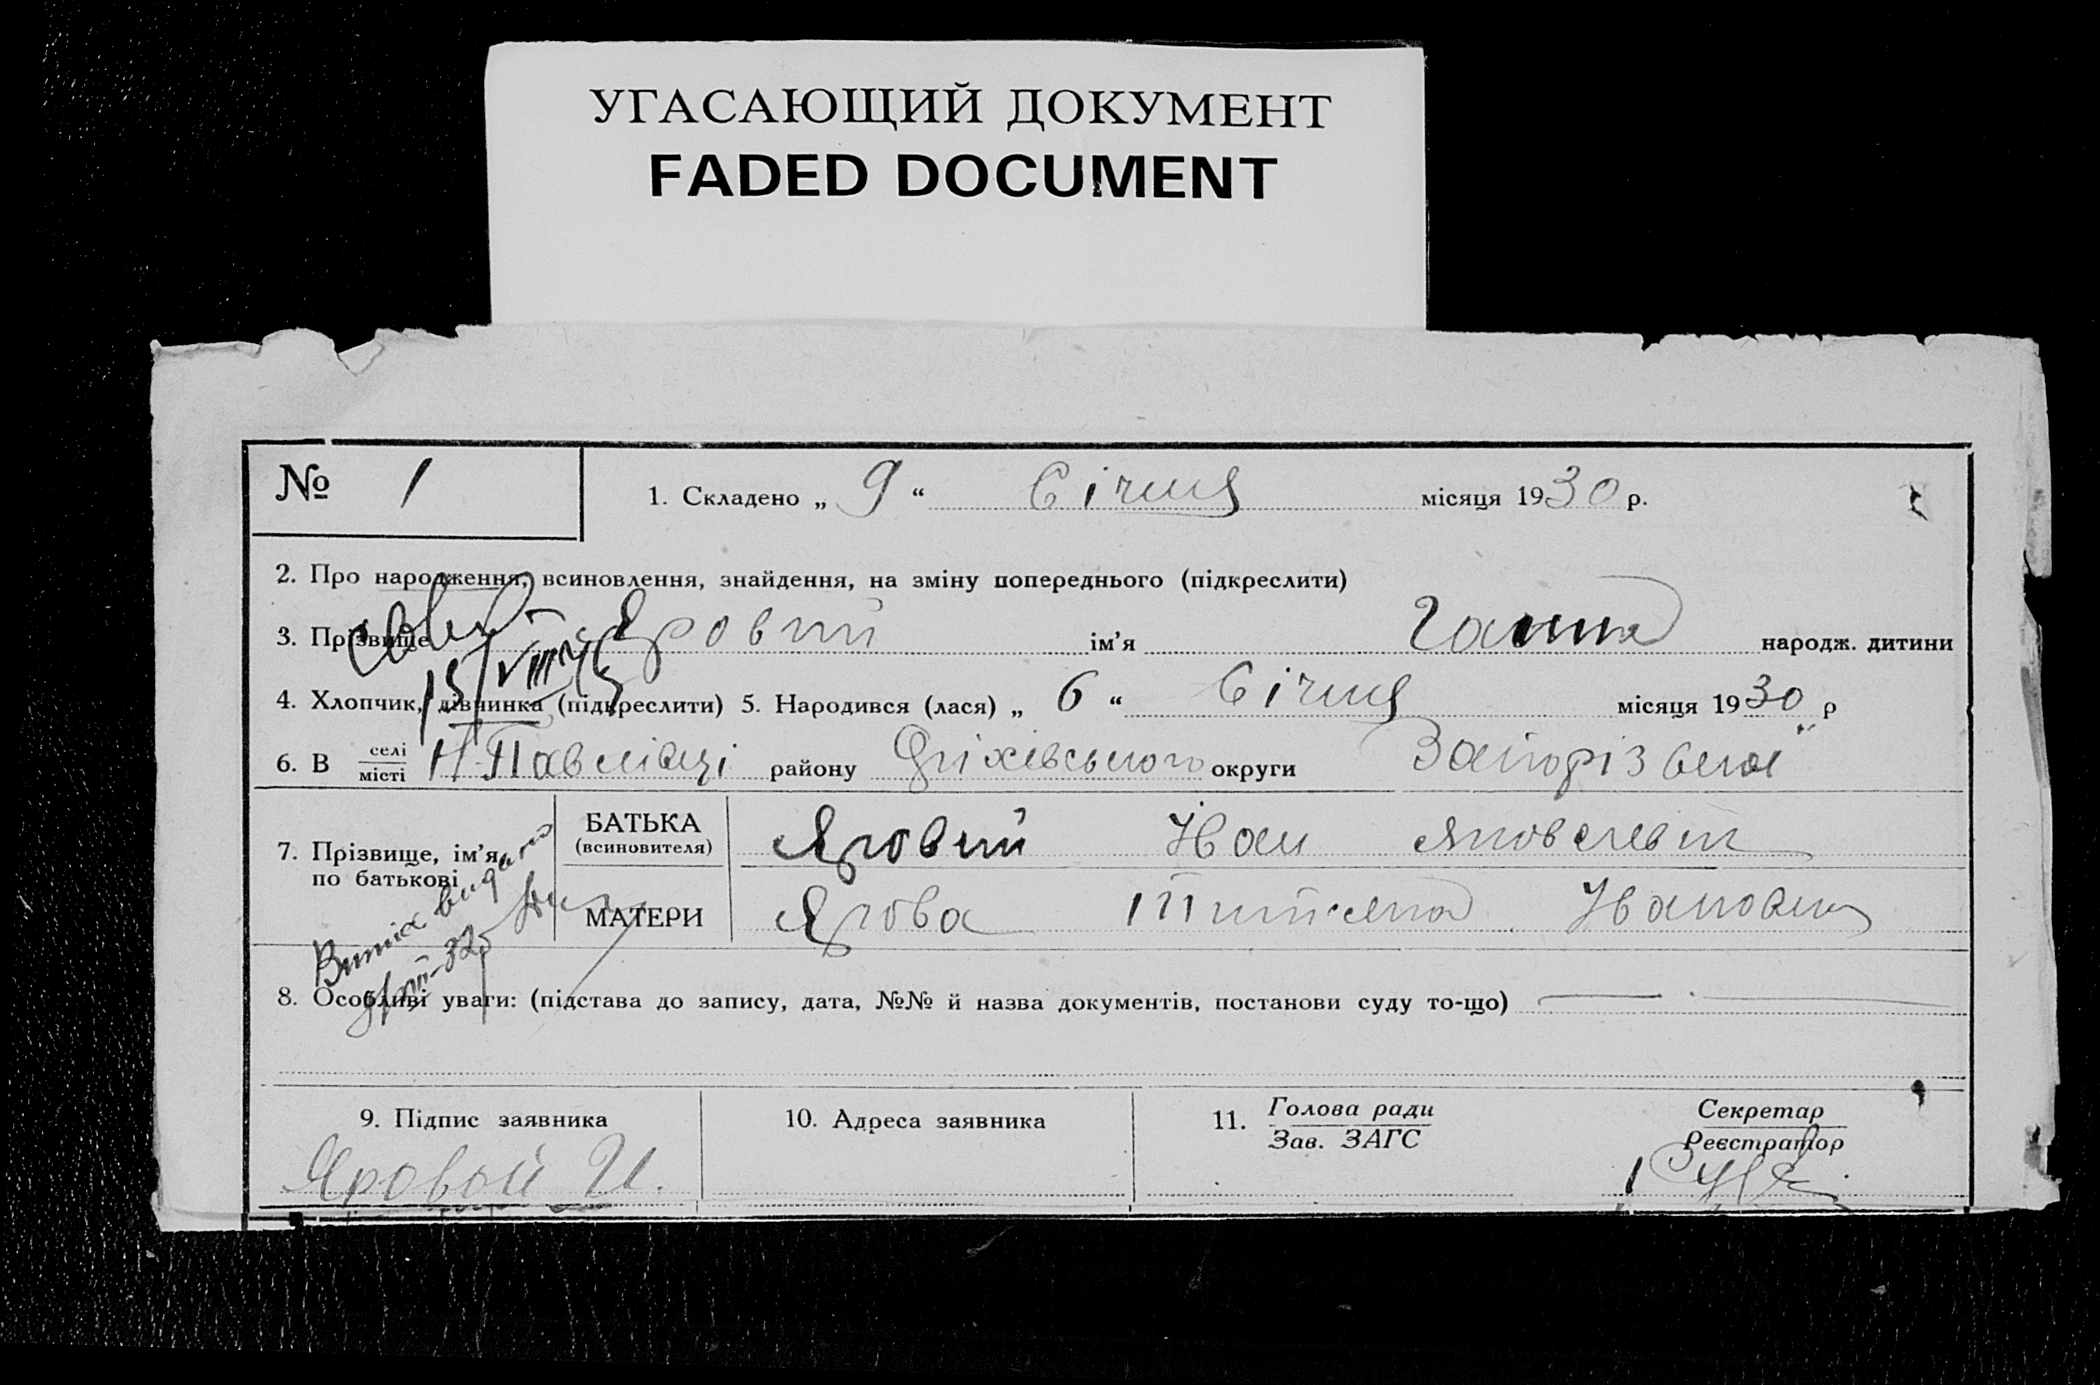 УГАСАЮЩИЙ ДОКУМЕНТ
FADED DOCUMENT
№ 1
1. Складено „ 9 “ Січня місяця 1930 р.
2. Про народження, всиновлення, знайдення, на зміну попереднього (підкреслити)
3. Прізвище Яровий ім’я Ганна народж. дитини
4. Хлопчик, дівчинка (підкреслити) 5. Народився (лася) „ 6 “ Січня місяця 1930 р
6. В селі
місті Н-Павлівці району Оріхівського округи Запорізької
7. Прізвище, ім’я, по батькові
БАТЬКА (всиновителя) Яровий Иван Яковлевіч
МАТЕРИ Ярова Ивановна
Витяг видано
8. Особливі уваги: (підстава до запису, дата, №№ й назва документів, постанови суду то-що)
9. Підпис заявника
Яровой И.
10. Адреса заявника
11. Голова ради
Зав. ЗАГС
Секретар
Реєстратор